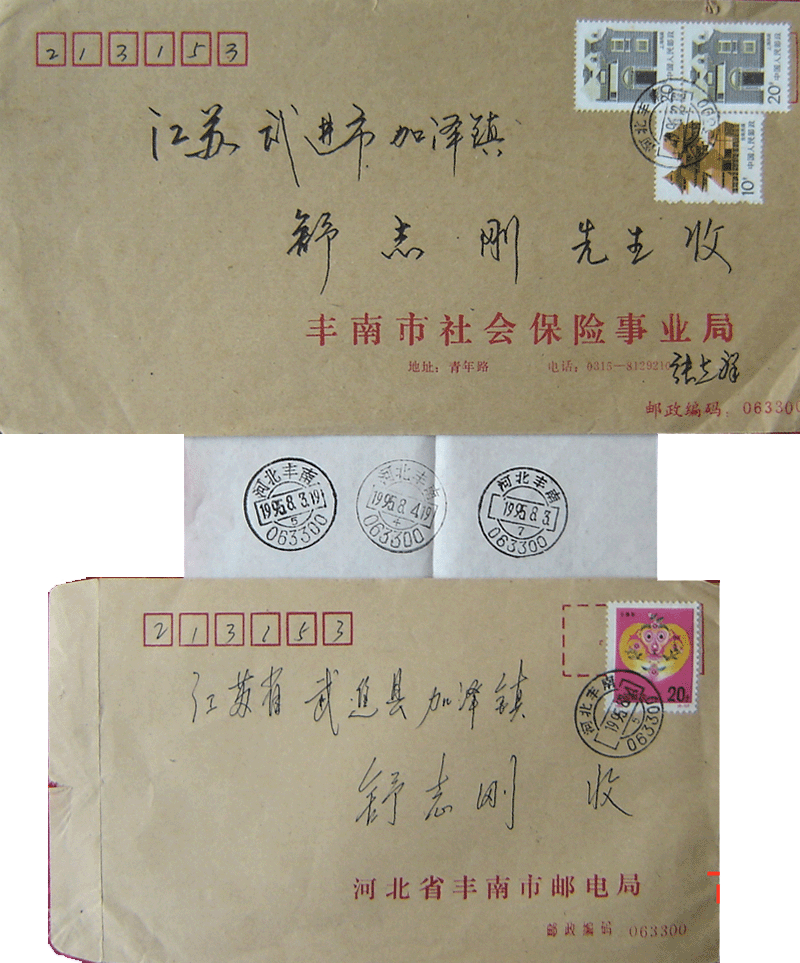 213153
20分 中国人民邮政
20分 中国人民邮政
10分 中国人民邮政
河北丰南
江苏武进市加泽镇
舒志刚 先生 收
丰南市社会保险事业局
地址：青年路 电话：0315—8129210
邮政编码：063300
河北丰南 1995.8.3.19 5 063300
河北丰南 1995.8.4.19 4 063300
河北丰南 1995.8.3. 7 063300
213153
20分
河北丰南 1995.8.4 5 063300
江苏省武进县加泽镇
舒志刚 收
河北省丰南市邮电局
邮政编码 063300